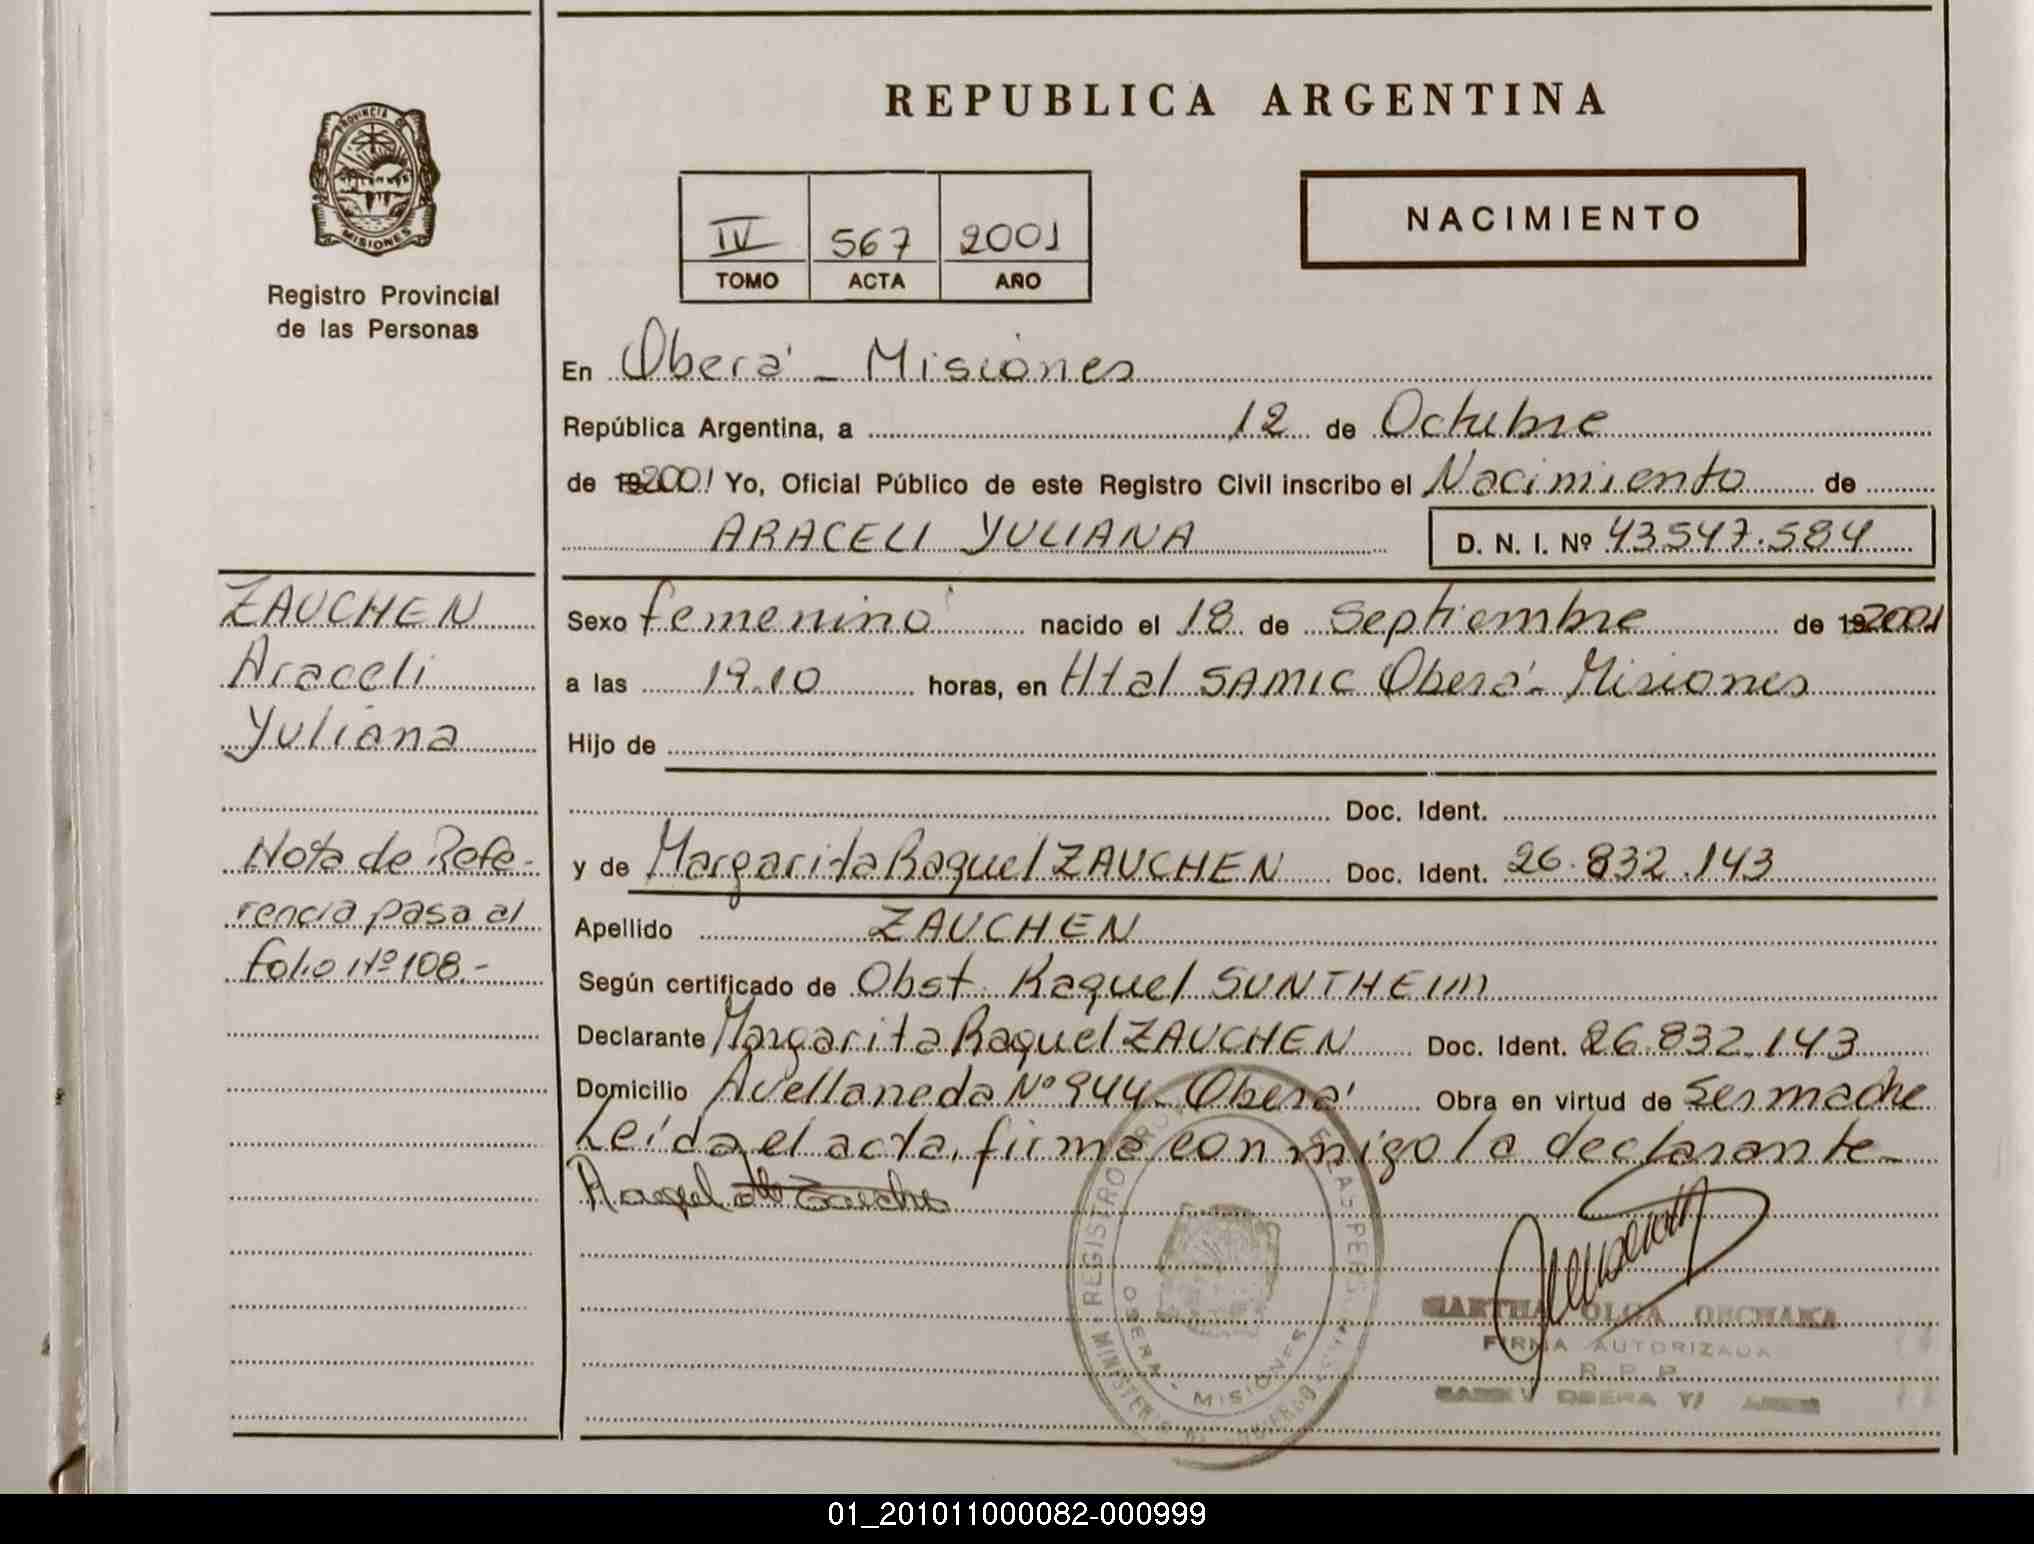 REPUBLICA ARGENTINA
PROVINCIA DE
MISIONES
Registro Provincial
de las Personas
IV 567 2001
TOMO ACTA AÑO
NACIMIENTO
En Oberá - Misiones
República Argentina, a 12 de Octubre
de 19 2001 Yo, Oficial Público de este Registro Civil inscribo el Nacimiento de
ARACELI YULIANA D. N. I. Nº 43547.584
ZAUCHEN
Araceli
Yuliana
Nota de Refe-
rencia pasa al
folio Nº 108.-
Sexo femenino nacido el 18 de Septiembre de 19 2001
a las 19.10 horas, en Htal SAMIC Oberá - Misiones
Hijo de
Doc. Ident.
y de Margarita Raquel ZAUCHEN Doc. Ident. 26.832.143
Apellido ZAUCHEN
Según certificado de Obst. Raquel SUNTHEIM
Declarante Margarita Raquel ZAUCHEN Doc. Ident. 26.832.143
Domicilio Avellaneda Nº 944 - Oberá Obra en virtud de Ser madre
Leída el acta, firma conmigo la declarante -
Raquel
REGISTRO
OBERA - MISIONES
MINISTERIO DE GOBIERNO
MARTHA OLGA
FIRMA AUTORIZADA
R. P. P.
OBERA
01_201011000082-000999